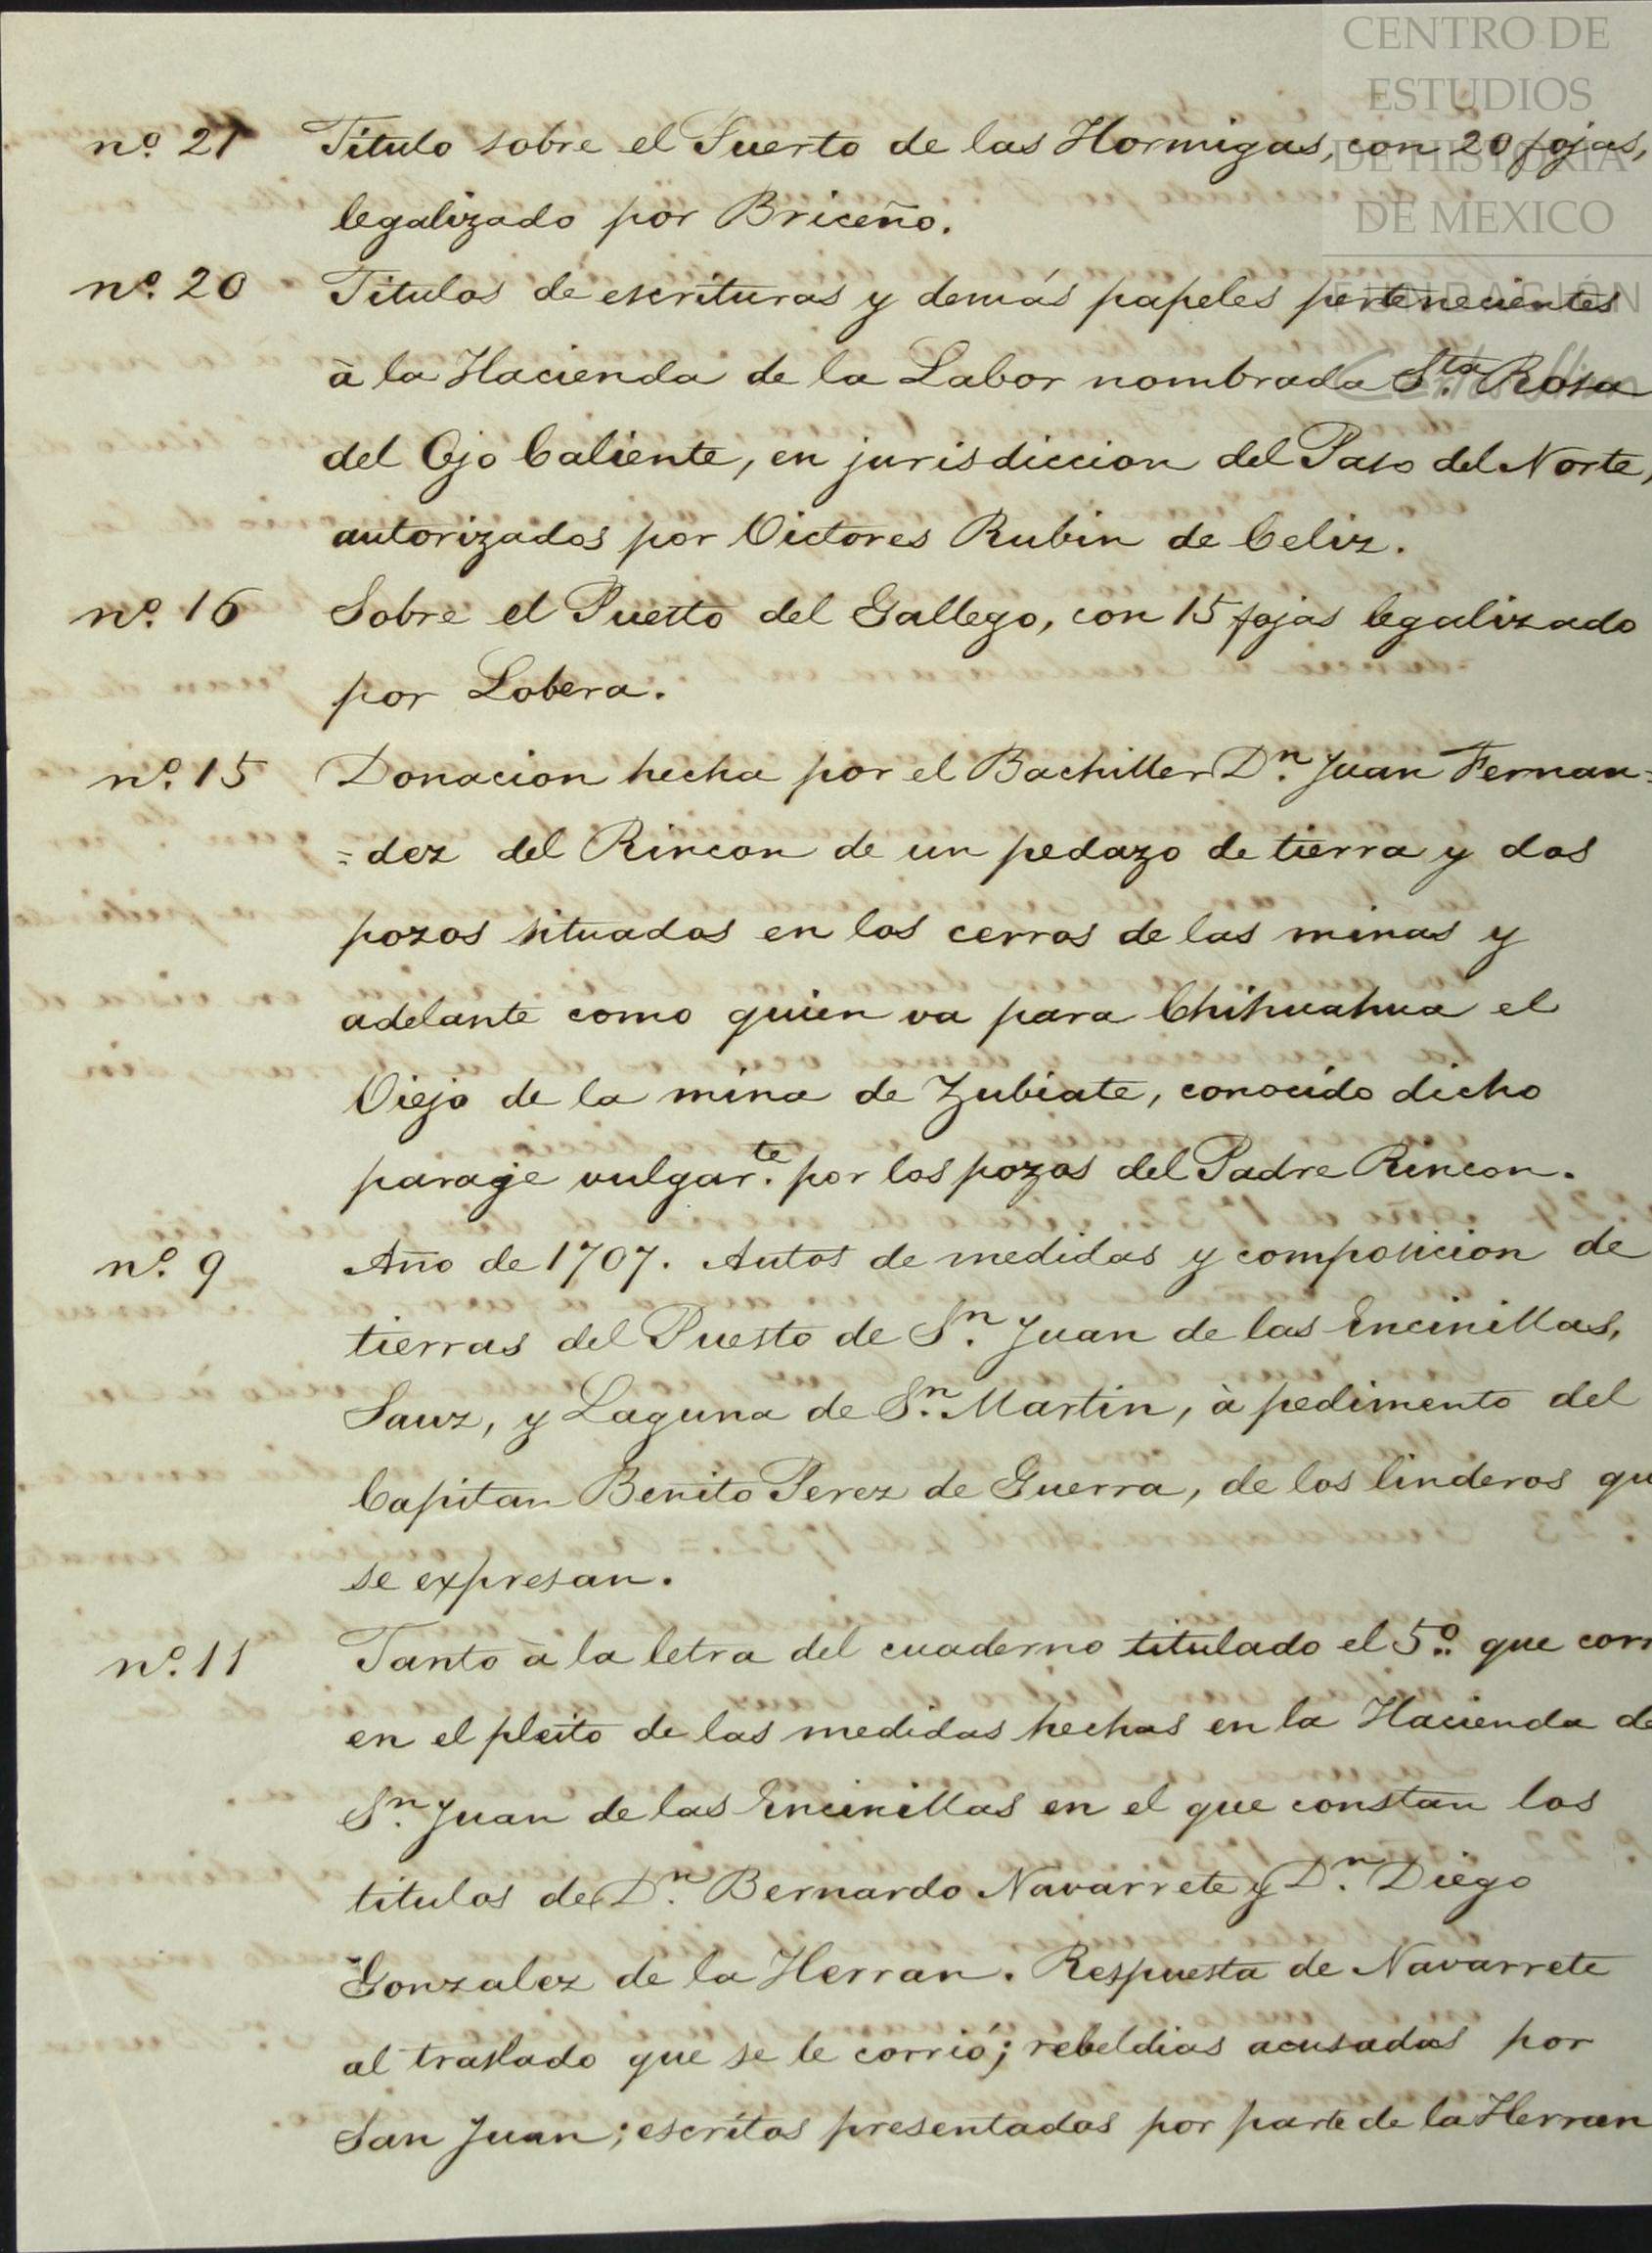 CENTRO DE
ESTUDIOS
DE HISTORIA
DE MEXICO
FUNDACIÓN
Carlos Slim
nº 21 Titulo sobre el Puerto de las Hormigas, con 20 fojas,
legalizado por Briceño.
nº. 20 Titulos de escrituras y demás papeles pertenecientes
à la Hacienda de la Labor nombrada Sta. Rosa
del Ojo Caliente, en jurisdiccion del Paso del Norte,
autorizados por Victores Rubin de Celiz.
nº. 16 Sobre el Puesto del Gallego, con 15 fojas legalizado
por Lobera.
nº. 15 Donacion hecha por el Bachiller Dn. Juan Fernan=
=dez del Rincon de un pedazo de tierra y dos
pozos situados en los cerros de las minas y
adelante como quien va para Chihuahua el
Viejo de la mina de Zubiate, conocido dicho
paraje vulgarte. por los pozos del Padre Rincon.
nº. 9 Año de 1707. Autos de medidas y composicion de
tierras del Puesto de Sn. Juan de las Encinillas,
Sauz, y Laguna de Sn. Martin, à pedimento del
Capitan Benito Perez de Guerra, de los linderos qu
se expresan.
nº. 11 Tanto à la letra del cuaderno titulado el 5º. que corr
en el pleito de las medidas hechas en la Hacienda de
Sn. Juan de las Encinillas en el que constan los
titulos de Dn. Bernardo Navarrete y Dn. Diego
Gonzalez de la Herran. Respuesta de Navarrete
al traslado que se le corrió; rebeldias acusadas por
San Juan; escritos presentados por parte de la Herran